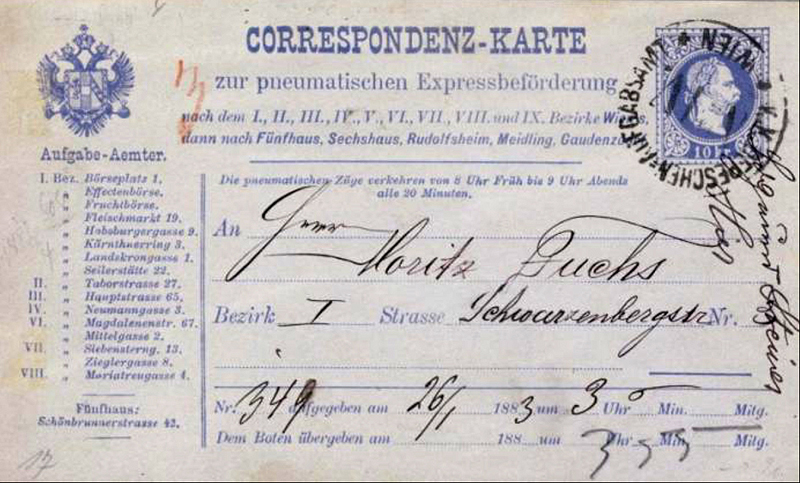 CORRESPONDENZ-KARTE
zur pneumatischen Expressbeförderung
nach dem I., II., III., IV., V., VI., VII., VIII. und IX. Bezirke Wiens,
dann nach Fünfhaus, Sechshaus, Rudolfsheim, Meidling, Gaudenz
10 Kr.
WIEN
Aufgabe-Aemter.
I. Bez. Börseplatz 1,
„ Effectenbörse.
„ Fruchtbörse.
„ Fleischmarkt 19.
„ Habsburgergasse 9.
„ Kärnthnerring 3.
„ Landskrongasse 1.
„ Seilerstätte 22.
II. „ Taborstrasse 27.
III. „ Hauptstrasse 65.
IV. „ Neumanngasse 3.
VI. „ Magdalenenstr. 67.
„ Mittelgasse 2.
VII. „ Siebensterng. 13.
„ Zieglergasse 8.
VIII. „ Mariatreugasse 4.
Fünfhaus:
Schönbrunnerstrasse 42.
17
Die pneumatischen Züge verkehren von 8 Uhr Früh bis 9 Uhr Abends
alle 20 Minuten.
An Herr
Moritz Fuchs
Bezirk I Strasse Schwarzenbergstr Nr.
Nr. 349 aufgegeben am 26/1 1883 um 3 Uhr Min. Mitg.
Dem Boten übergeben am 188 um Uhr Min. Mitg.